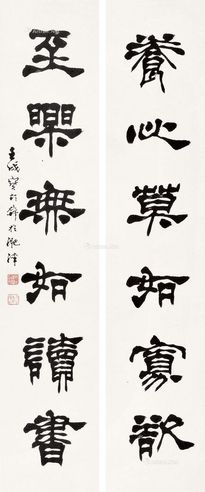 養心莫如寡欲
至樂無如讀書